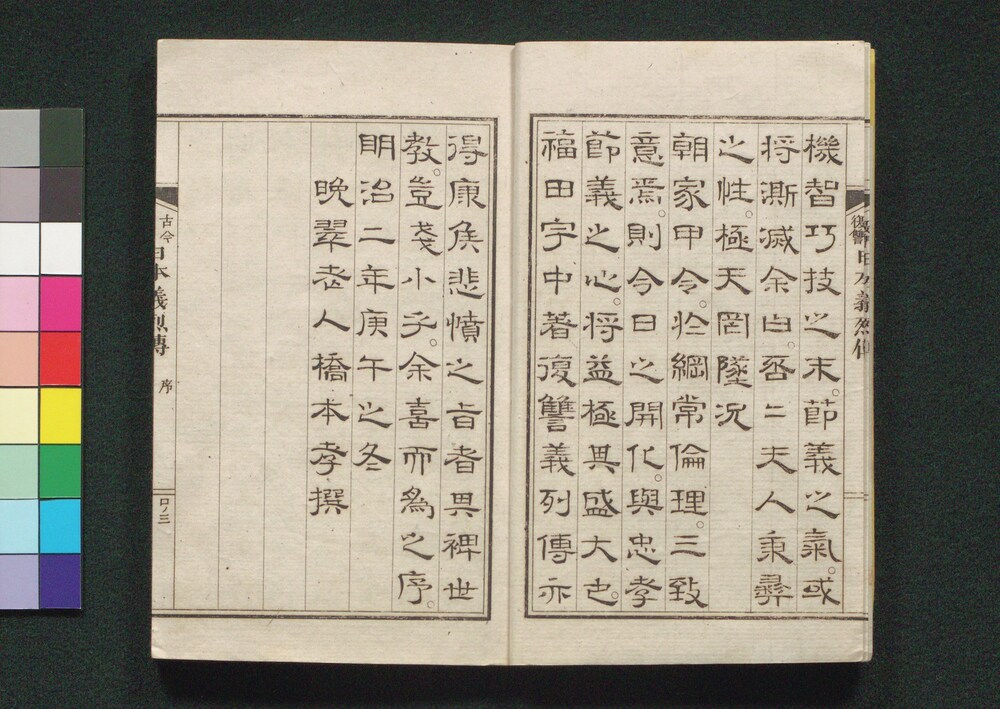 機智巧技之末。節義之氣。或
将漸滅余曰。否二天人秉彝
之性。極天罔墜況
朝家甲令。於綱常倫理。三致
意焉。則今日之開化。與忠孝
節義之心。将益極其盛大也。
福田宇中著復讐義列傳亦
得康矦悲憤之旨者其裨世
教。豈戔小子。余喜而爲之序。
明治二年庚午之冬
晩翠老人橋本孝撰
古今
日本義烈傳
序
口ノ三